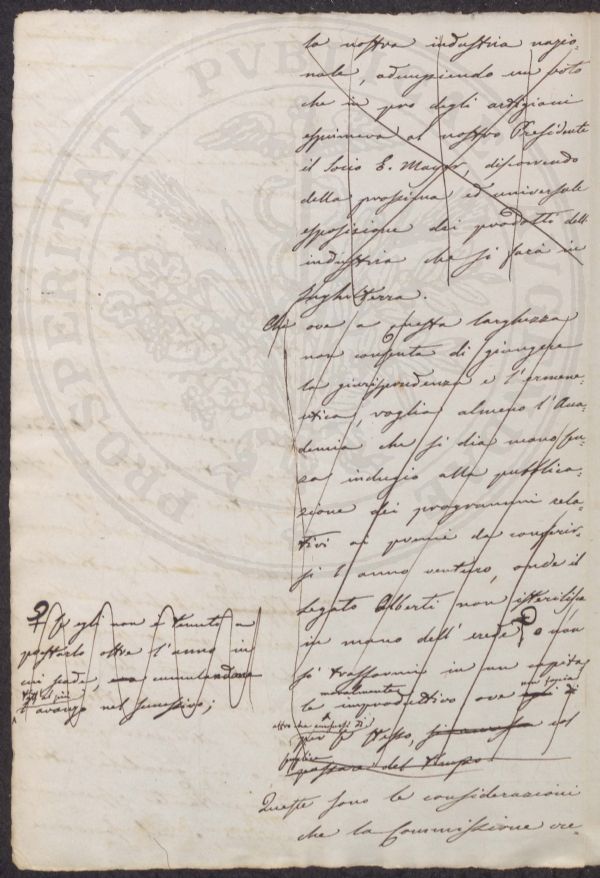 la nostra industria nazio-
nale, adempiendo un voto
che in pro degli artigiani
esprimeva al nostro Presidente
il socio E. Mayer, discorrendo
della prossima ed universale
esposizione dei prodotti dell'
industria che si farà in
Inghilterra.
Che ove a questa larghezza
non consenta di giungere
la giurisprudenza e l'ermene-
utica, voglia almeno l'Acca-
demia che si dia mano sen-
za indugio alla pubblica-
zione dei programmi rela-
tivi ai premi da conferir-
si l'anno venturo, onde il
Legato Alberti non isterilisca
in mano dell'erede, o non
si trasformi in un capita-
le improduttivo ove
per se stesso, col
passare del tempo
Queste sono le considerazioni
che la Commissione cre-
Se egli non è tenuto a
portarlo oltre l'anno in
cui cade, cumulandone
l'avanzo nel successivo;
PROSPERITATI PVBLICAE AVGENDAE